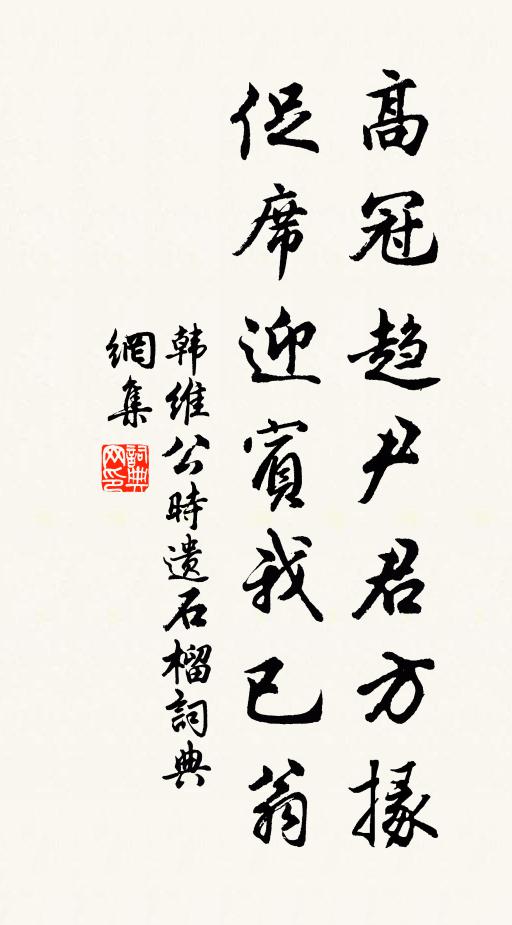 高冠趋尹君方掾
促席迎賓我已翁
韩維公時遗石榴詞典
網集
詞典网印